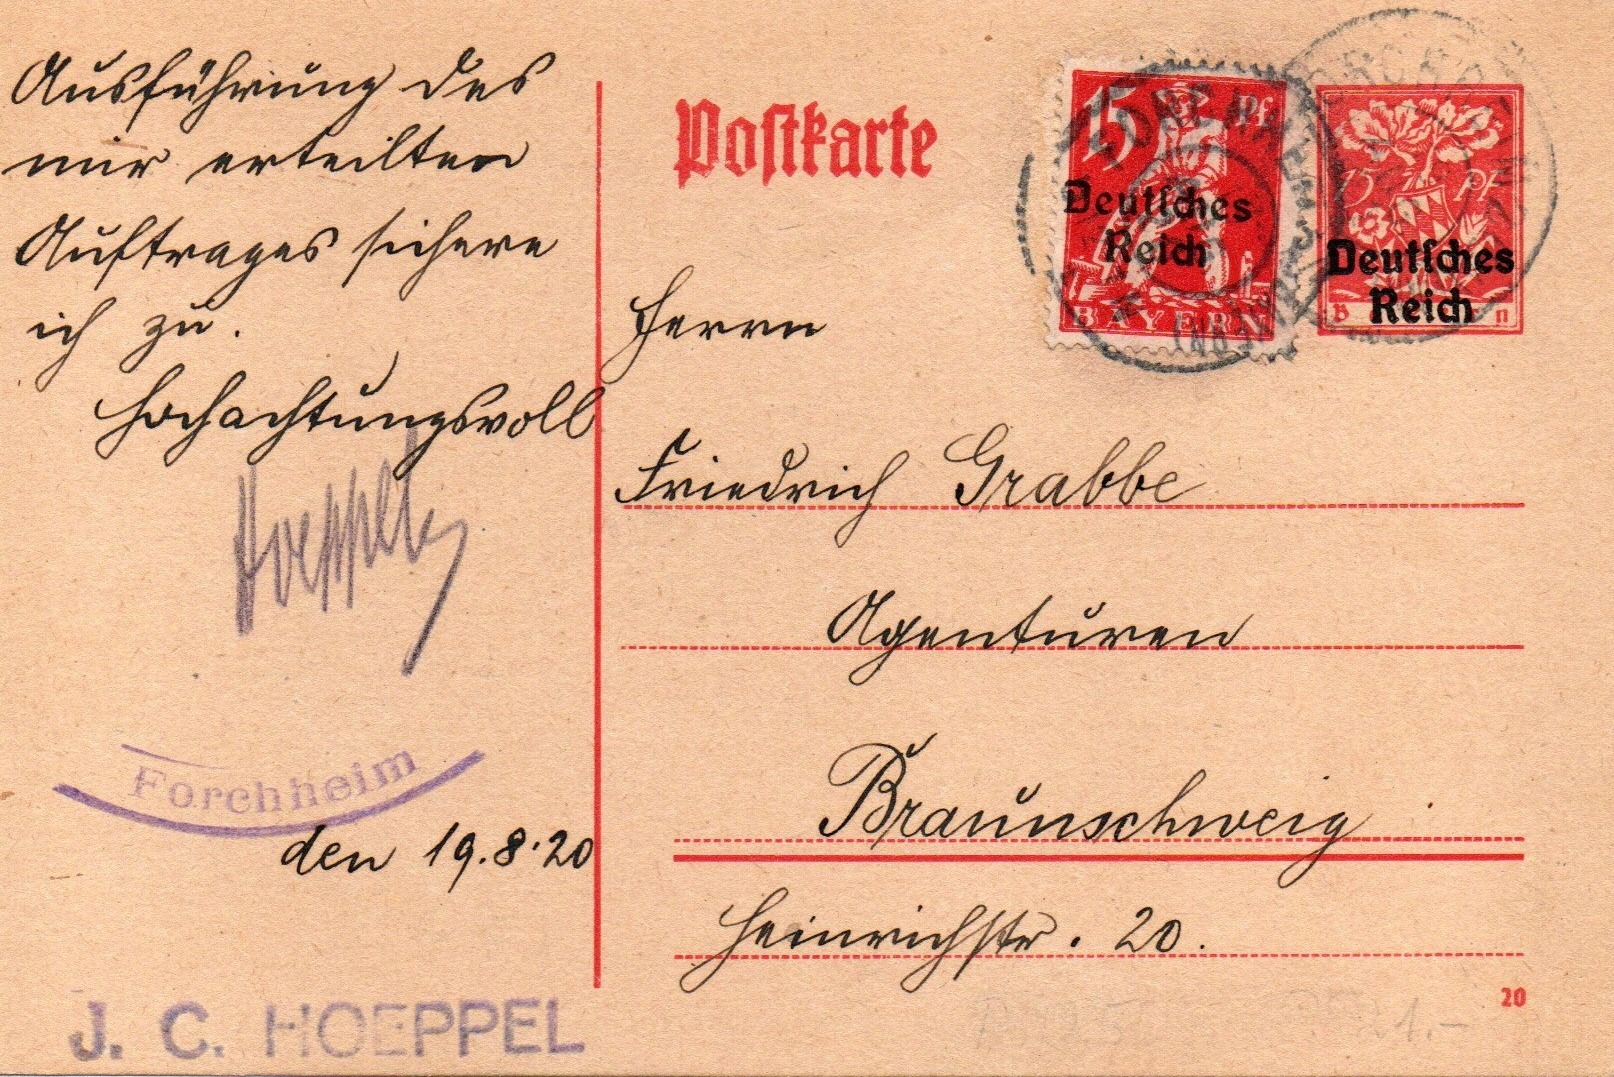 Ausführung des
mir erteilten
Auftrages sichere
ich zu.
Hochachtungsvoll
Hoeppel
Forchheim
den 19.8.20
J. C. HOEPPEL
Postkarte
15 Pf
Deutsches
Reich
BAYERN
15 Pf
Deutsches
Reich
FORCHHEIM
Herrn
Friedrich Grabbe
Agenturen
Braunschweig
Heinrichstr. 20.
20
21.-